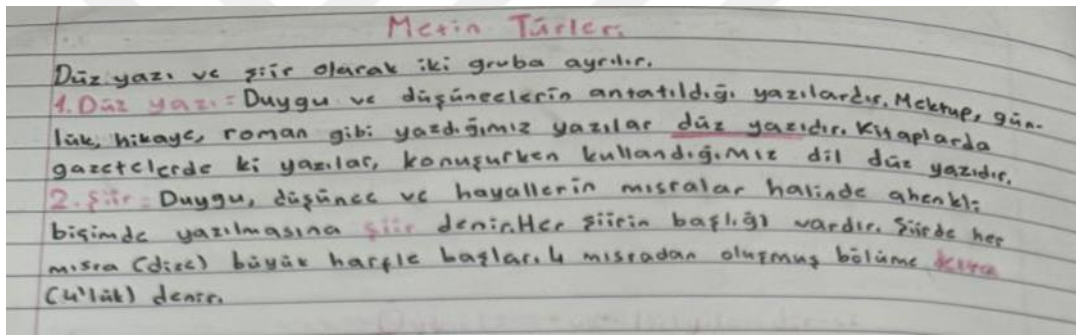 Metin Türleri
Düz yazı ve şiir olarak iki gruba ayrılır.
1. Düz yazı = Duygu ve düşüncelerin antatıldığı yazılardır. Mektup, gün-
lük, hikaye, roman gibi yazdığımız yazılar düz yazıdır. Kitaplarda
gazetelerde ki yazılar, konuşurken kullandığımız dil düz yazıdır.
2. Şiir = Duygu, düşünce ve hayallerin mısralar halinde ahenkli
biçimde yazılmasına şiir denir. Her şiirin başlığı vardır. Şiirde her
mısra (dize) büyük harfle başlar. 4 mısradan oluşmuş bölüme kıta
(4'lük) denir.